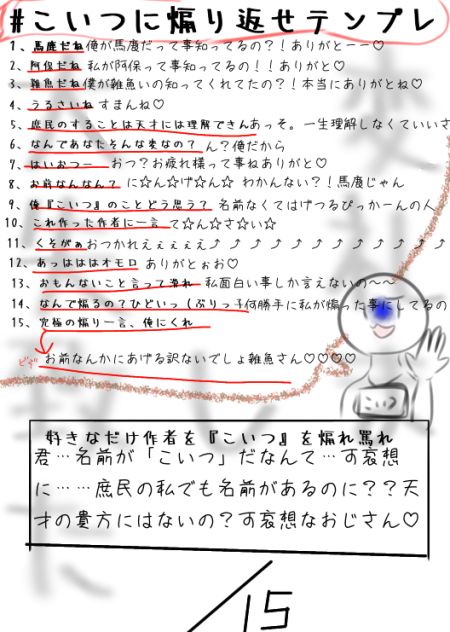 #こいつに煽り返せテンプレ
1、馬鹿だね俺が馬鹿だって事知ってるの?!ありがとーー♡
2、阿保だね 私が阿保って事知ってるの!!ありがと♡
3、雑魚だね僕が雑魚いの知ってくれてたの?!本当にありがとね♡
4、うるさいね すまんね♡
5、庶民のすることは天才には理解できんあっそ。一生理解しなくていいさ
6、なんであなたそんな変なの? ん?俺だから
7、はいおつー おつ?お疲れ様って事ねありがと♡
8、お前なんなん? に☆ん☆げ☆ん☆ わかんない?!馬鹿じゃん
9、俺『こいつ』のことどう思う? 名前なくてはげつるぴっかーんの人
10、これ作った作者に一言 て☆ん☆さ☆い☆
11、くそがぁ おつかれえぇぇぇえ⤴⤴⤴⤴⤴⤴⤴⤴⤴
12、あっははははオモロ ありがとぉお♡
13、おもんないこと言って滑れ 私面白い事しか言えないの〜〜
14、なんで煽るの?ひどいっ(ぶりっ子何勝手に私が煽った事にしてるの
15、究極の煽り一言、俺にくれ
どぞ お前なんかにあげる訳ないでしょ雑魚さん♡♡♡♡
こいつ
好きなだけ作者を『こいつ』を煽れ罵れ
君…名前が「こいつ」だなんて…可哀想
に……庶民の私でも名前があるのに??天
才の貴方にはないの?可哀想なおじさん♡
/15